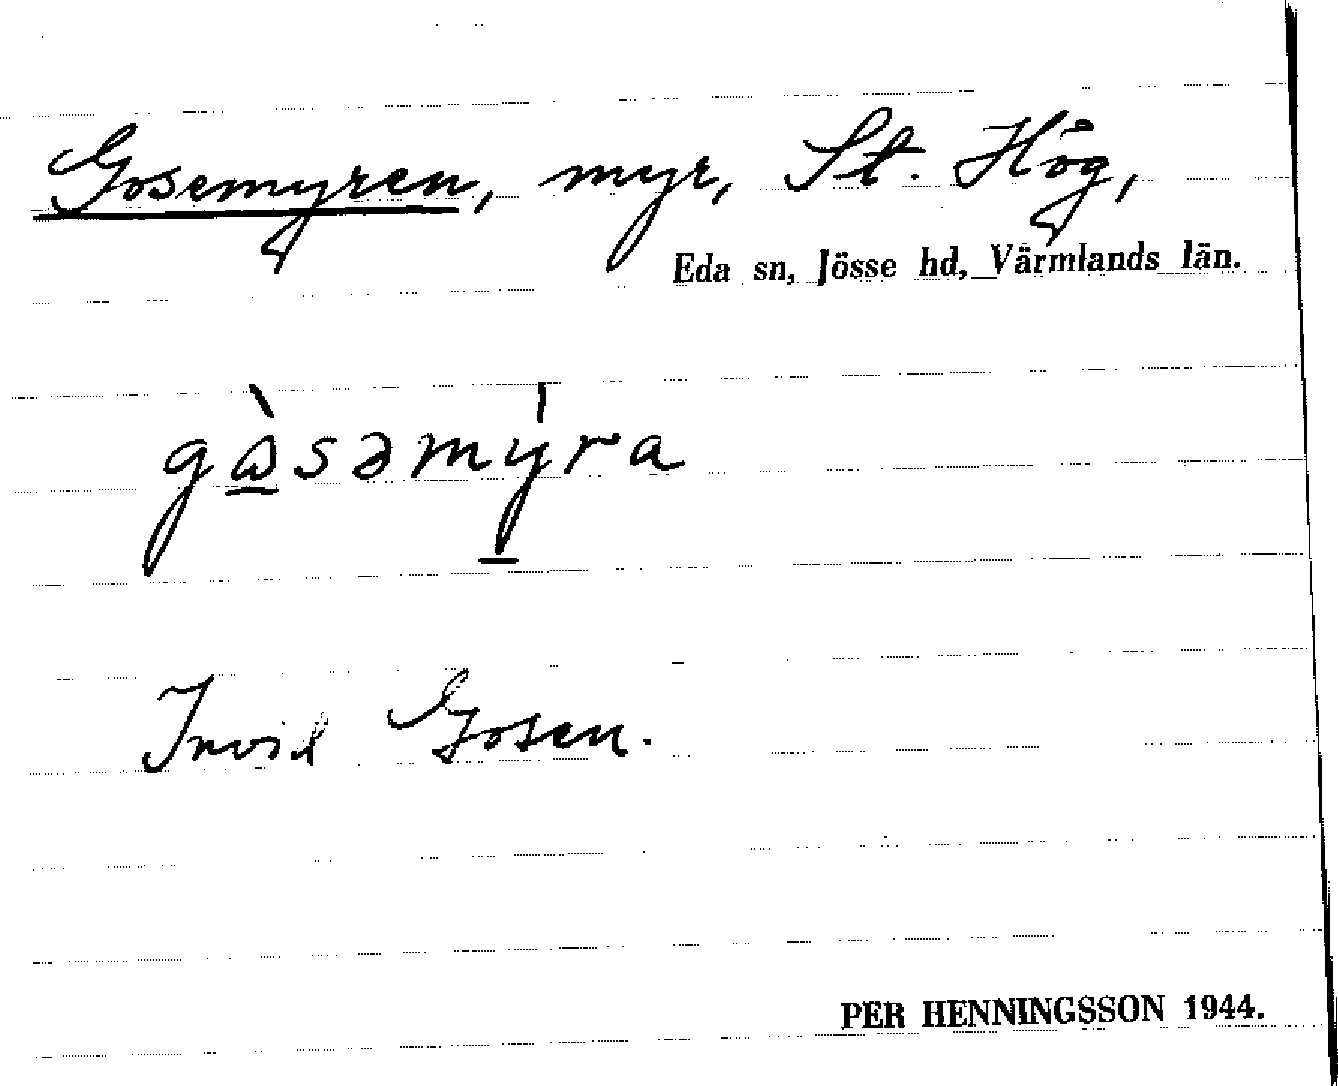 Gosemyren, myr, St. Hög,
Eda sn, Jösse hd, Värmlands län.
gòsəmýra
Invid Gosen.
PER HENNINGSSON 1944.